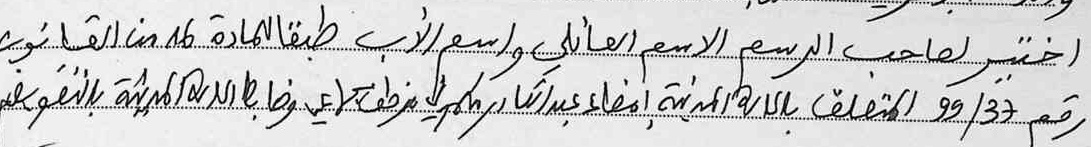 اختير لصاحب الرسم الاسم العائلي واسم الأب طبقا للمادة 16 من القانون
رقم 99/37 المتعلق بالحالة المدنية إمضاء عبد القادر وضابط الحالة المدنية بالتفويض